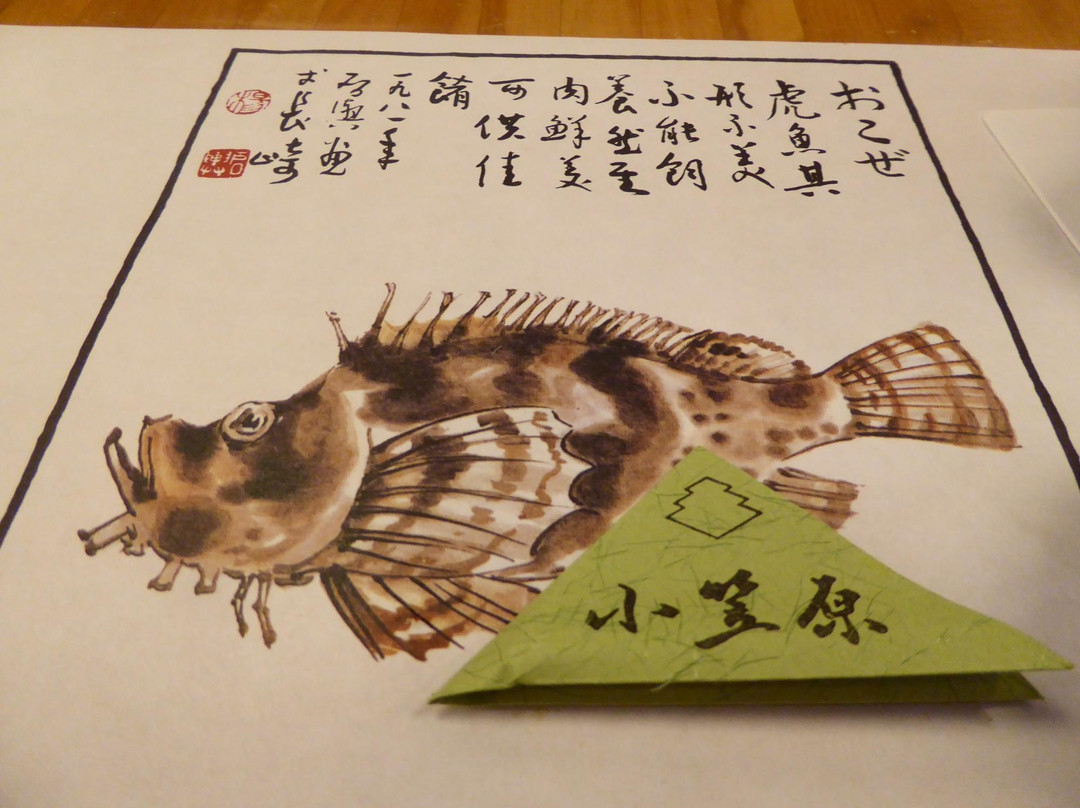 おこぜ
虎魚其
形不美
不能飼
養然其
肉鮮美
可供佳
餚
一九八一年
画
於長崎
小笠原